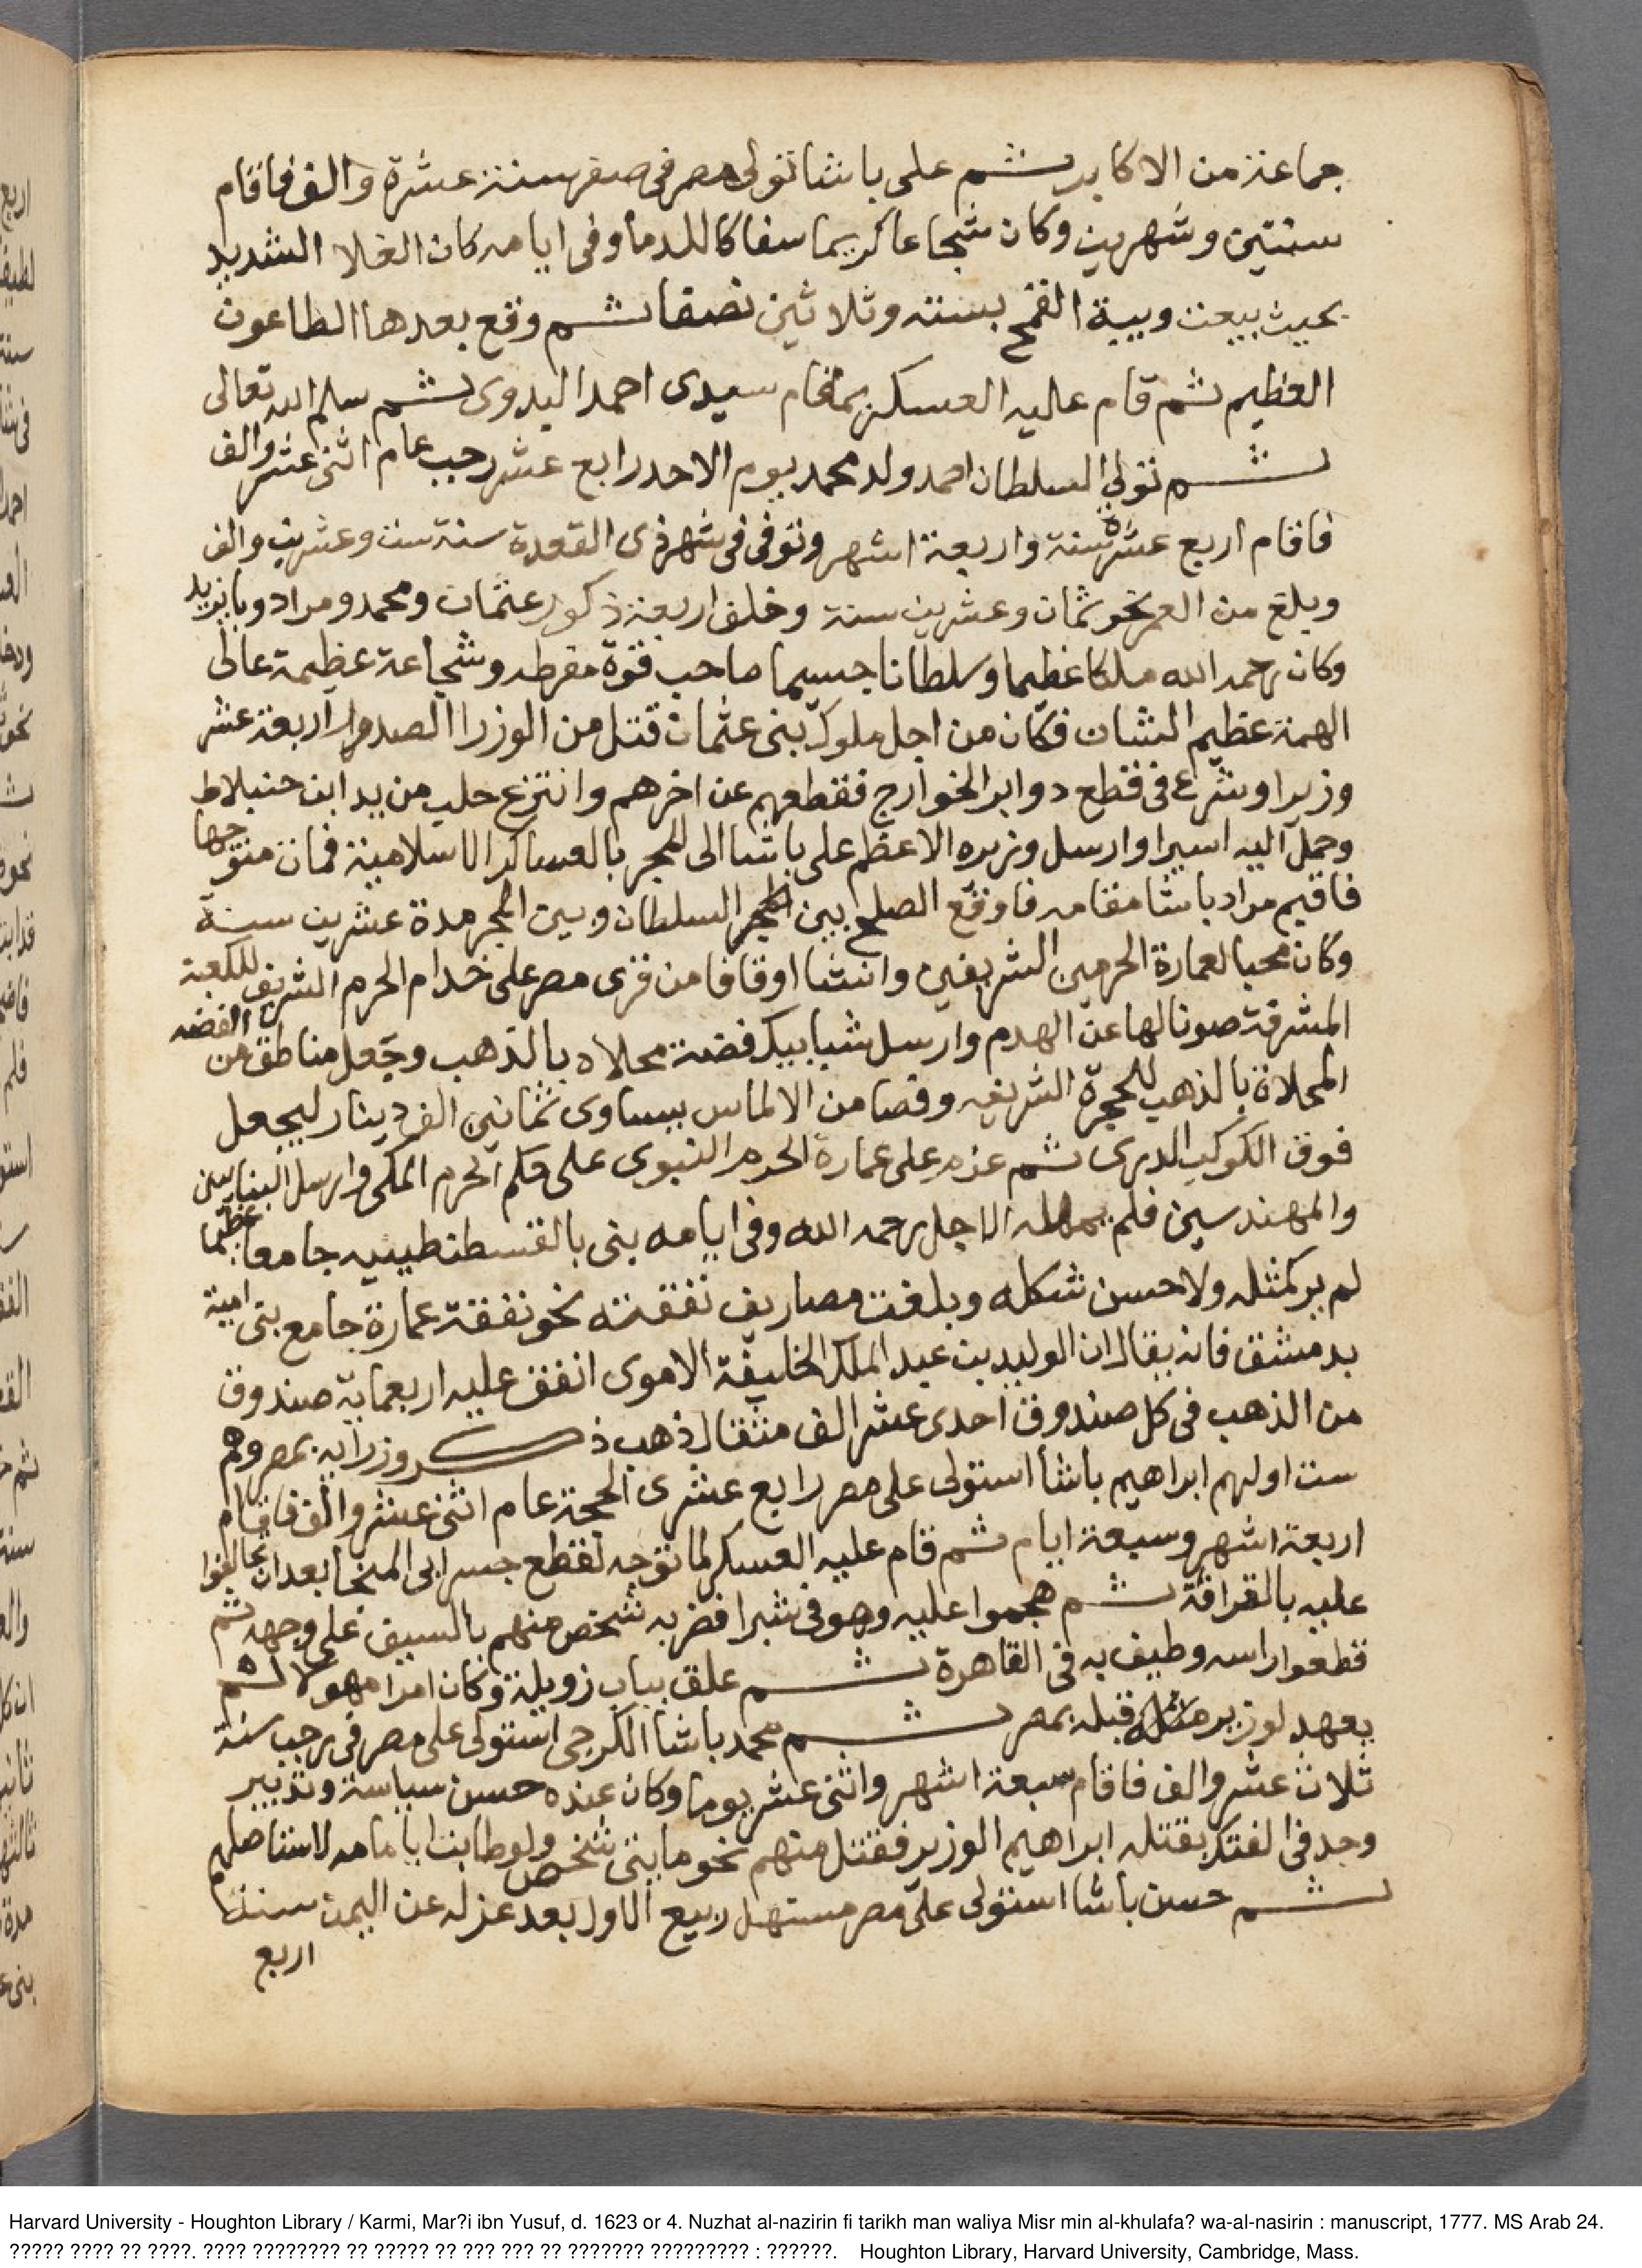 جماعة من الاكابر ثم على باشا تولى مصر فى صفر سنة عشرة والف فاقام
سنتين وشهرين وكان شجاعا كريما سفاكا للدما وفى ايامه كان الغلا الشديد
بحيث بيعت ويبة القمح بستة وثلاثين نصفا ثم وقع بعدها الطاعون
العظيم ثم قام عليه العسكر بمقام سيدى احمد البدوى ثم سلم الله تعالى
ثم تولى السلطان احمد ولد محمد يوم الاحد رابع عشر رجب عام اثنى عشر والف
فاقام اربع عشرة سنة واربعة اشهر وتوفى فى شهر ذى القعدة سنة ست وعشرين والف
وبلغ من العمر نحو ثمان وعشرين سنة وخلف اربعة ذكور عثمان ومحمد ومراد وبايزيد
وكان رحمه الله ملكا عظيما وسلطانا جسيما صاحب قوة مفرطه وشجاعة عظيمة عالى
الهمة عظيم الشان فكان من اجل ملوك بنى عثمان قتل من الوزرا الصدور اربعة عشر
وزيرا وشرع فى قطع دوابر الخوارج فقطعهم عن اخرهم وانتزع حلب من يد ابن جنبلاط
وحمل اليه اسيرا وارسل وزيره الاعظم على باشا الى المجر بالعساكر الاسلامية فمات متوجها
فاقيم مراد باشا مقامه فاوقع الصلح بين السلطان وبين المجر مدة عشرين سنة
وكان محبا لعمارة الحرمين الشريفين وانشا اوقافا من قرى مصر على خدام الحرم الشريف للكعبة
المشرفة صونا لها عن الهدم وارسل شبابيك فضة محلاه بالذهب وجعل مناطق من الفضه
المحلاة بالذهب للحجرة الشريفه وفصا من الالماس يساوى ثمانين الف دينار ليجعل
فوق الكوكب الدرى ثم عزم على عمارة الحرم النبوى على حكم الحرم المكى وارسل البنايين
والمهندسين فلم يمهله الاجل رحمه الله وفى ايامه بنى بالقسطنطينيه جامعا عظيما
لم ير كمثله ولا حسن شكله وبلغت مصاريف نفقته نحو نفقة عمارة جامع بنى امية
بدمشق فانه يقال ان الوليد بن عبد الملك الخليفة الاموى انفق عليه اربعماية صندوق
من الذهب فى كل صندوق احدى عشر الف مثقال ذهب ذكر وزرايه بمصر وهم
ست اولهم ابراهيم باشا استولى على مصر رابع عشرى الحجة عام اثنى عشر والف فاقام
اربعة اشهر وسبعة ايام ثم قام عليه العسكر لما توجه لقطع جسر ابى المنجا بعد ان تحالفوا
عليه بالقرافة ثم هجموا عليه وهو فى شبرا فضربه شخص منهم بالسيف على وجهه ثم
قطعوا راسه وطيف به فى القاهرة ثم علق بباب زويلة وكان امرا مهولا لم
يعهد لوزير مثله قبله بمصر ثم محمد باشا الكرجى استولى على مصر فى رجب سنة
ثلاث عشر والف فاقام سبعة اشهر واثنى عشر يوما وكان عنده حسن سياسة وتدبير
وجد فى الفتك بقتلة ابراهيم الوزير فقتل منهم نحو مايتى شخص ولو طالت ايامه لاستاصلهم
ثم حسن باشا استولى على مصر مستهل ربيع الاول بعد عزله عن اليمن سنة
اربع
Harvard University - Houghton Library / Karmi, Mar?i ibn Yusuf, d. 1623 or 4. Nuzhat al-nazirin fi tarikh man waliya Misr min al-khulafa? wa-al-nasirin : manuscript, 1777. MS Arab 24.
????? ???? ?? ????. ???? ???????? ?? ????? ?? ??? ??? ?? ??????? ????????? : ??????. Houghton Library, Harvard University, Cambridge, Mass.